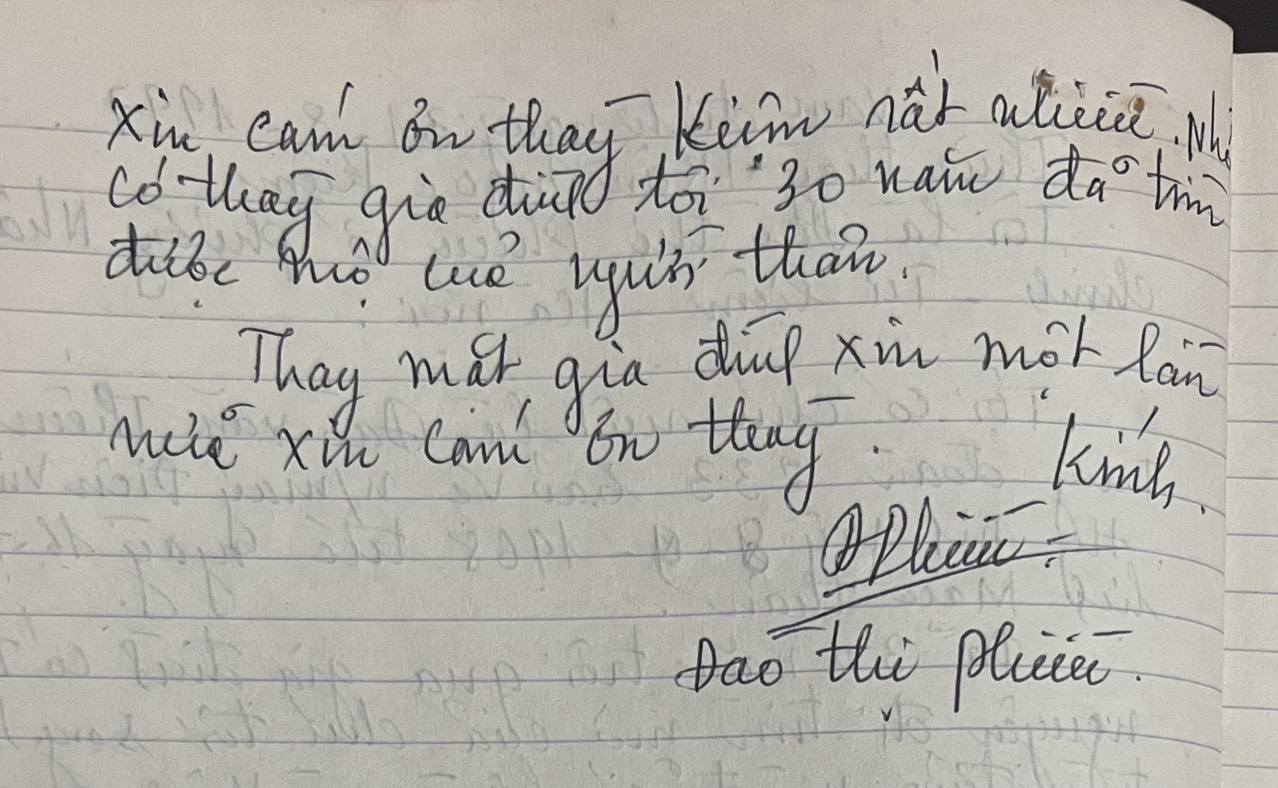 Xin cám ơn thầy Kiêm rất nhiều. Nhờ
có thầy gia đình tôi 30 năm đã tìm
được mộ của người thân.
Thay mặt gia đình xin một lần
nữa xin cám ơn thầy.
Kính.
Đào thị Phiều.